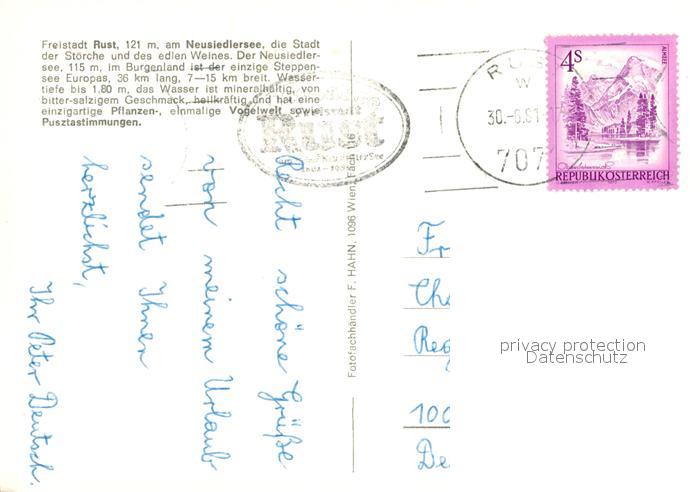 Freistadt Rust, 121 m, am Neusiedlersee, die Stadt
der Störche und des edlen Weines. Der Neusiedler-
see, 115 m, im Burgenland ist der einzige Steppen-
see Europas, 36 km lang, 7—15 km breit. Wasser-
tiefe bis 1.80 m, das Wasser ist mineralhältig, von
bitter-salzigem Geschmack, heilkräftig und hat eine
einzigartige Pflanzen-, einmalige Vogelwelt sowie
Pusztastimmungen.
Rust
Recht schöne Grüße
von meinem Urlaub
sendet Ihnen
herzlichst,
Ihr Peter Deutsch.
Fotofachhändler F. HAHN, 1096 Wien, Fach 116
RUS
W
30.-6.81
707
4S
ALMSEE
REPUBLIK ÖSTERREICH
Fr
Cha
Reg
100
De
privacy protection
Datenschutz